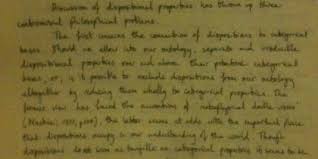 Discussion of dispositional properties has thrown up three
controversial philosophical problems.
The first concerns the connection of dispositions to categorical
bases. Should we allow into our ontology, separate and irreducible
dispositional properties over and above their potential categorical
bases, or, is it possible to exclude dispositions from our ontology
altogether by reducing them wholly to categorical properties. The
former view has faced the accusation of metaphysical
(Mackie, 1977, the latter seems at odds with the important place
that dispositions occupy in our understanding of the world. Though
dispositions as tangible as categorical properties it seems to be